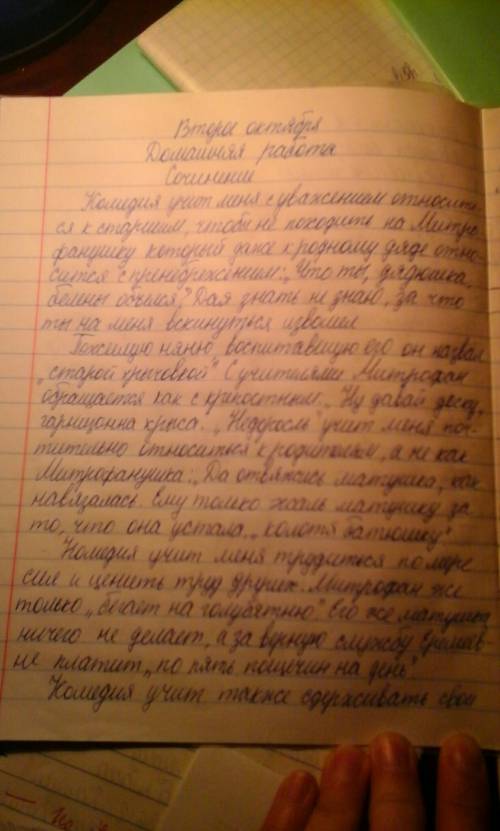 Второе октября
Домашняя работа
Сочинение
Комедия учит меня с уважением относить-
ся к старшим, чтобы не походить на Митро
фанушку который даже к родному дяде отно-
сится с пренебрежением: „Что ты, дядюшка,
белены объелся?" Да я знать не знаю, за что
ты на меня вскинуться изволил
Пожилую няню, воспитавшую его он назвал
„старой хрычовкой" С учителями Митрофан
обращается как с крепостными: „Ну давай доску,
гарнизонна крыса. „Недоросль" учит меня поч-
тительно относиться к родителям, а не как
Митрофанушка: „Да отвяжись матушка, как
навязалась. Ему только жаль матушку за
то, что она устала „колотя батюшку"
Комедия учит меня трудиться по мере
сил и ценить труд других. Митрофан же
только „бегает на голубятню". Его же матушка
ничего не делает, а за верную службу Еремеев
не платит „по пять пощечин на день".
Комедия учит также сдерживать свои